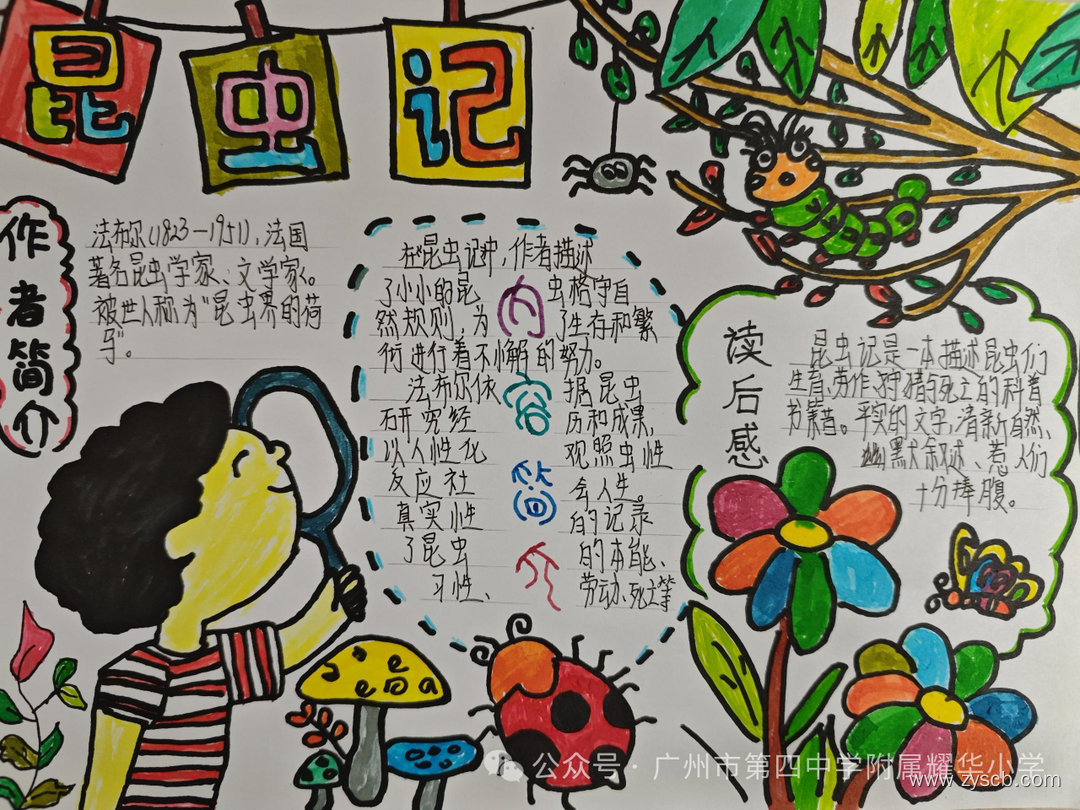 昆虫记
作者简介
法布尔(1823—1951),法国
著名昆虫学家、文学家。
被世人称为“昆虫界的荷
马”。
内容简介
在昆虫记中,作者描述
了小小的昆虫恪守自
然规则,为了生存和繁
衍进行着不懈的努力。
法布尔依据昆虫
研究经历和成果,
以人性化观照虫性
反应社会人生。
真实性的记录
了昆虫的本能、
习性、劳动、死亡等
读后感
昆虫记是一本描述昆虫们
生育、劳作、狩猎与死亡的科普
书籍。平实的文字,清新自然、
幽默叙述、惹人们
十分捧腹。
公众号·广州市第四中学附属耀华小学
www.zyscb.com